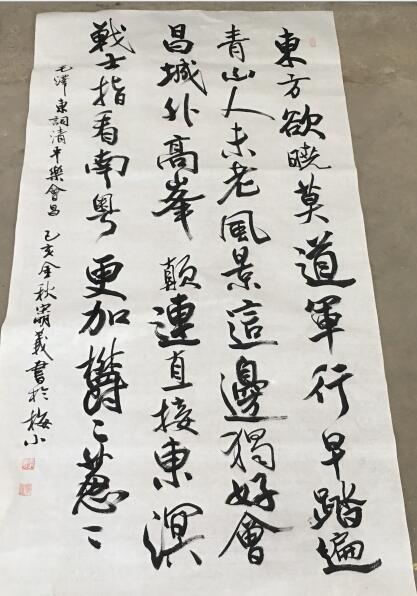 東方欲曉莫道軍行早踏遍
青山人未老風景這邊獨好會
昌城外高峯顛連直接東溟
戰士指看南粵更加欝〻蔥〻
毛澤東詞清平樂會昌 己亥金秋義書於梅小